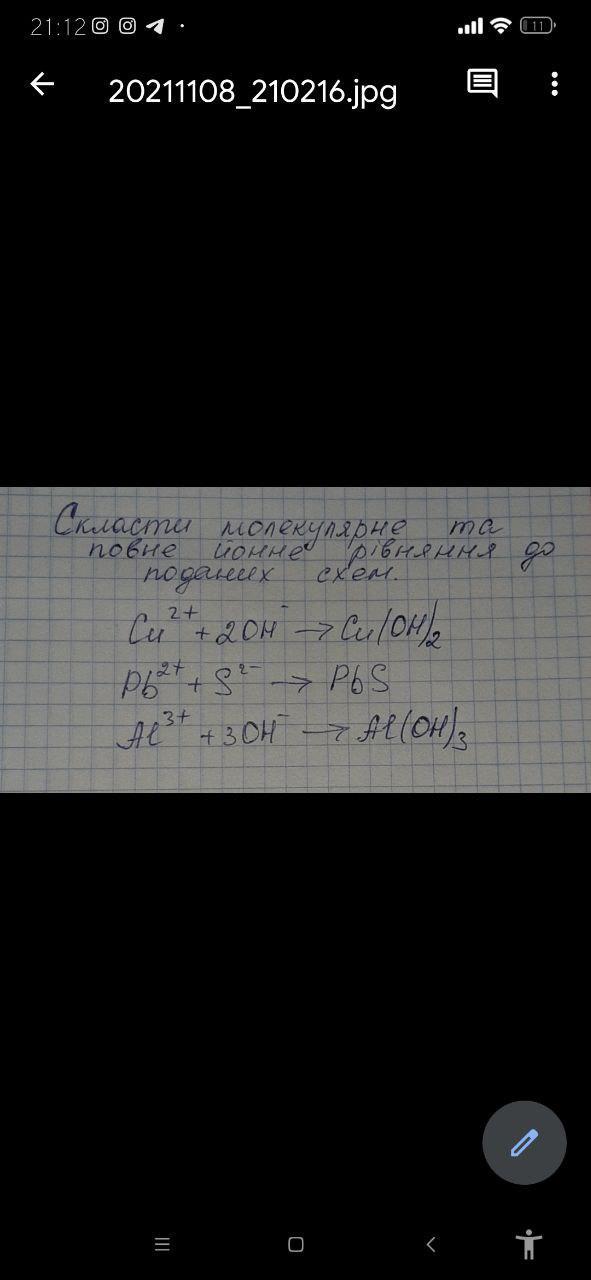 21:12
11
20211108_210216.jpg
Скласти молекулярне та
повне йонне рівняння до
поданих схем.
Cu²⁺ + 2OH⁻ → Cu(OH)₂
Pb²⁺ + S²⁻ → PbS
Al³⁺ + 3OH⁻ → Al(OH)₃